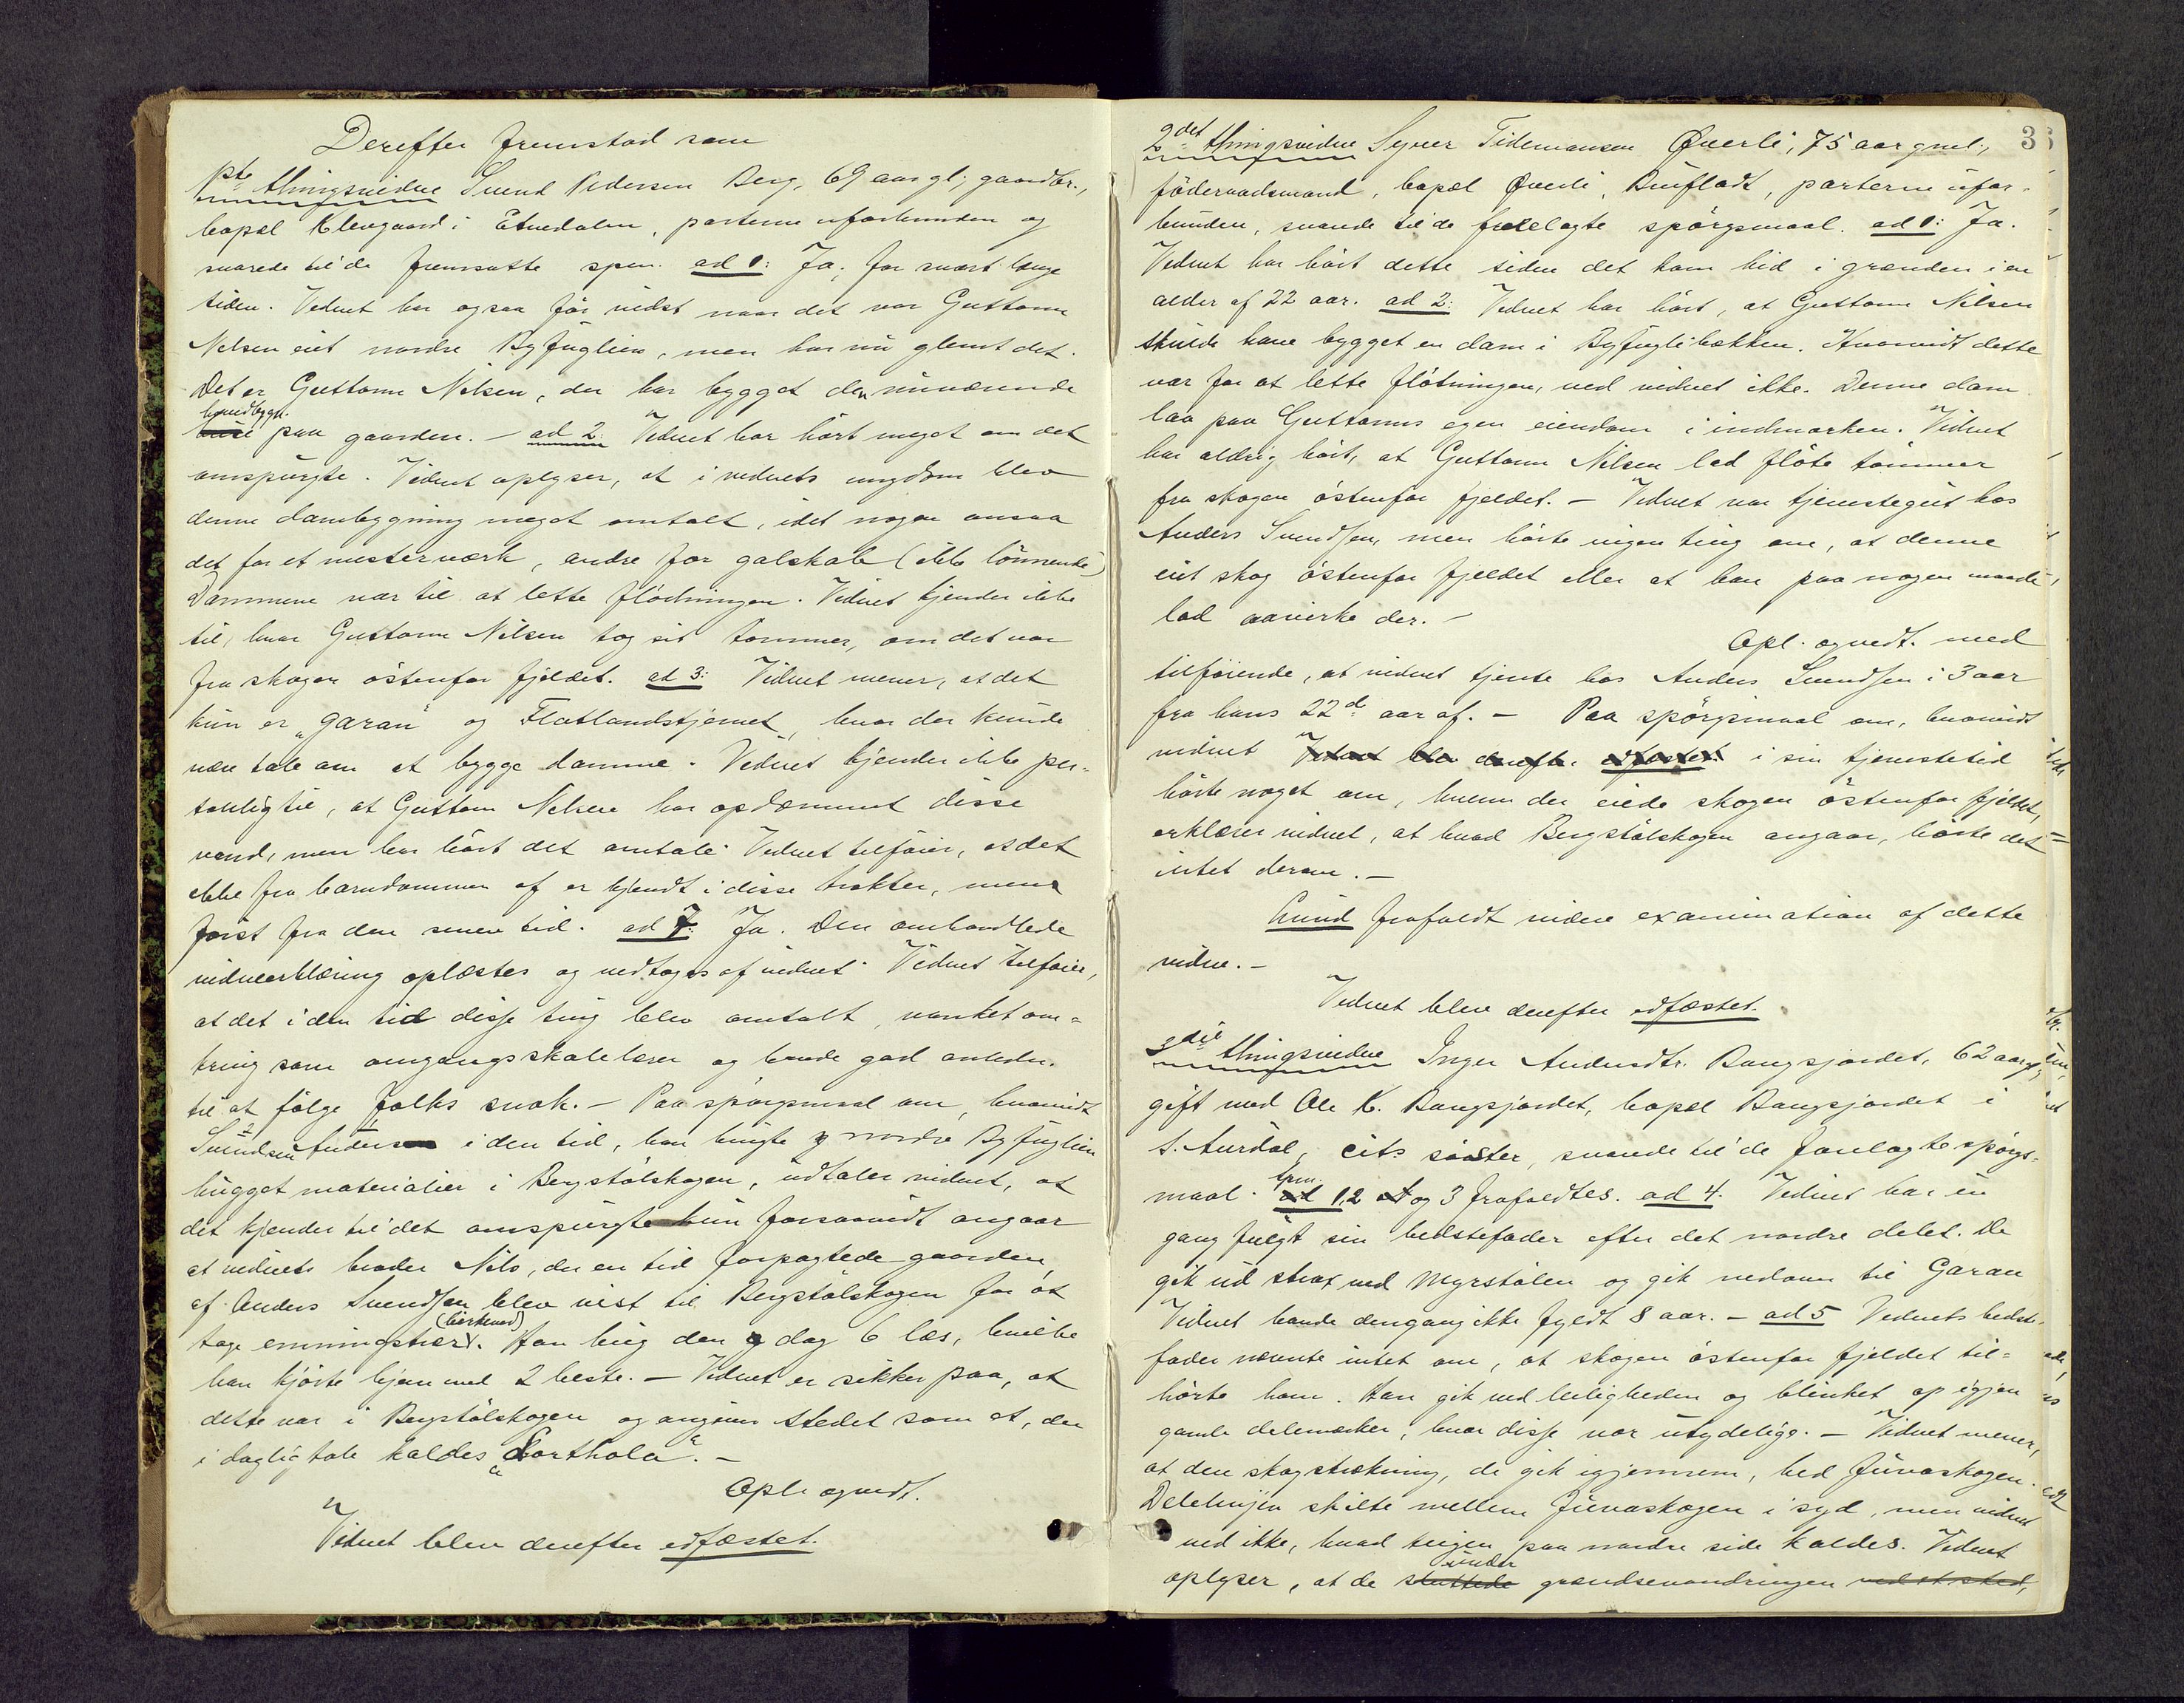 Derefter fremstod som
1ste thingsvidne Svend Pedersen Berg, 69 aar gl; gaardbr.,
bopæl Klevgaard i Etnedalen, parterne uforbunden og
svarede til de fremsatte spm. ad 1: Ja, for svært længe
siden. Vidnet har ogsaa før vidst naar det var Guttorm
Nilsen eiet nordre Byfuglien, men har nu glemt det.
Det er Guttorm Nilsen, der har bygget den nuværende
hovedbygn.
huse paa gaarden. - ad 2: Vidnet har hørt meget om det
omspurgte. Vidnet oplyser, at i vidnets ungdom blev
denne dambygning meget omtalt, idet nogen ansaa
det for et mesterværk, andre for galskab (ikke lønnende)
Dammene var til at lette flødningen. Vidnet kjender ikke
til, hvor Guttorm Nilsen tog sit tømmer, om det var
fra skogen østenfor fjeldet. ad 3: Vidnet mener, at det
kun er "Garan" og Flatlandstjernet, hvor der kunde
være tale om at bygge damme. Vidnet kjender ikke per-
sonlig til, at Guttorm Nilsen har opdæmmet disse
vand, men har hørt det omtale. Vidnet tilføier, at det
ikke fra barndommen af er kjendt i disse trakter, mens
først fra den senere tid. ad 7: Ja. Den omhandlede
vidneerklæring oplæstes og vedtoges af vidnet. Vidnet tilføier,
at det i den tid disse ting blev omtalt, vanket om-
kring som omgangsskolelærer og havde god anledn.
til at følge folks snak. - Paa spørgsmaal om, hvorvidt
Svendsen Anders i den tid, han brugte nordre Byfuglien
hugget materialier i Bergstølskogen, udtaler vidnet, at
det kjender til det omspurgte kun forsaavidt angaar
at vidnets broder Nils, der en tid forpagtede gaarden
af Anders Svendsen blev vist til Bergstølskogen for at
(birkeved)
tage emningstrær. Han hug den dag 6 læs, hvilke
han kjørte hjem med 2 heste. - Vidnet er sikker paa, at
dette var i Bergstølskogen og angiver stedet som et, der
i daglig tale kaldes "Korthola". -
Opl. og vedt.
Vidnet blev derefter edfæstet.
2det thingsvidne Syver Tidemansen Øverli, 75 aar gml.,
føderaadsmand, bopæl Øverli, Bruflat, parterne ufor-
bunden, svarede til de forelagte spørgsmaal. ad 1: Ja.
Vidnet har hørt dette siden det kom hid i grænden i en
alder af 22 aar. ad 2: Vidnet har hørt, at Guttorm Nilsen
skulde have bygget en dam i Byfuglibækken. Hvorvidt dette
var for at lette fløtningen, ved vidnet ikke. Denne dam
laa paa Guttorms egen eiendom i indmarken. Vidnet
har aldrig hørt, at Guttorm Nilsen lod fløte tømmer
fra skogen østenfor fjeldet. - Vidnet var tjenestegut hos
Anders Svendsen, men hørte ingen ting om, at denne
eiet skog østenfor fjeldet eller at han paa nogen maade
lod avirke der. -
Opl. og vedt. med
tilføiende, at vidnet tjente hos Anders Svendsen i 3 aar
fra hans 22d. aar af. - Paa spørgsmaal om, hvorvidt
vidnet Vidnet blev derefter edfæstet. i sin tjenestetid
hørte noget om, hvem der eiede skogen østenfor fjeldet,
erklærer vidnet, at hvad Bergstølskogen angaar, hørte det
intet derom. -
Lund frafaldt videre examination af dette
vidne. -
Vidnet blev derefter edfæstet.
3die thingsvidne Inger Andersdtr. Bangsjordet, 62 aar gl.,
gift med Ole K. Bangsjordet, bopæl Bangsjordet i
S. Aurdal, cits søster, svarede til de forelagte spørgs-
spm.
maal. ad 1, 2 og 3 frafaldtes. ad 4. Vidnet har en
gang fulgt sin bedstefader efter det nordre delet. De
gik ud strax ved Myrstølen og gik nedom til Garan
Vidnet havde dengang ikke fyldt 8 aar. - ad 5 Vidnets bedste-
fader nævnte intet om, at skogen østenfor fjeldet til-
hørte ham. Han gik ved leiligheden og blinket op igjen
gamle delemærker, hvor disse var utydelige. - Vidnet mener,
at den skogstrækning, de gik igjennem, hed Juvaskogen.
Delelinjen skilte mellem Juvaskogen i syd, men vidnet
ved ikke, hvad teigen paa nordre side kaldes. Vidnet
under
oplyser, at de sluttede grændsevandringen ved et sted,